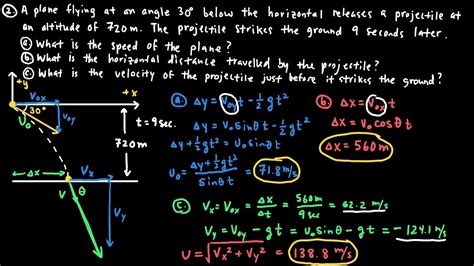 ② A plane flying at an angle 30° below the horizontal releases a projectile at
an altitude of 720m. The projectile strikes the ground 9 seconds later.
ⓐ What is the speed of the plane?
ⓑ What is the horizontal distance travelled by the projectile?
ⓒ What is the velocity of the projectile just before it strikes the ground?
+y
Vox
+x
30°
Voy
Vo
t=9sec.
720m
Δx
Vx
V
θ
Vy
ⓐ Δy = Voy t - ½gt²
Δy = Vo sinθ t - ½gt²
Δy + ½gt² = Vo sinθ t
Vo = (Δy + ½gt²)/(sinθ t) = 71.8 m/s
ⓑ Δx = Vox t
Δx = Vo cosθ t
Δx = 560m
ⓒ Vx = Vox = Δx/Δt = 560m/9sec = 62.2 m/s
Vy = Voy - gt = Vo sinθ - gt = -124.1 m/s
V = √(Vx² + Vy²) = 138.8 m/s